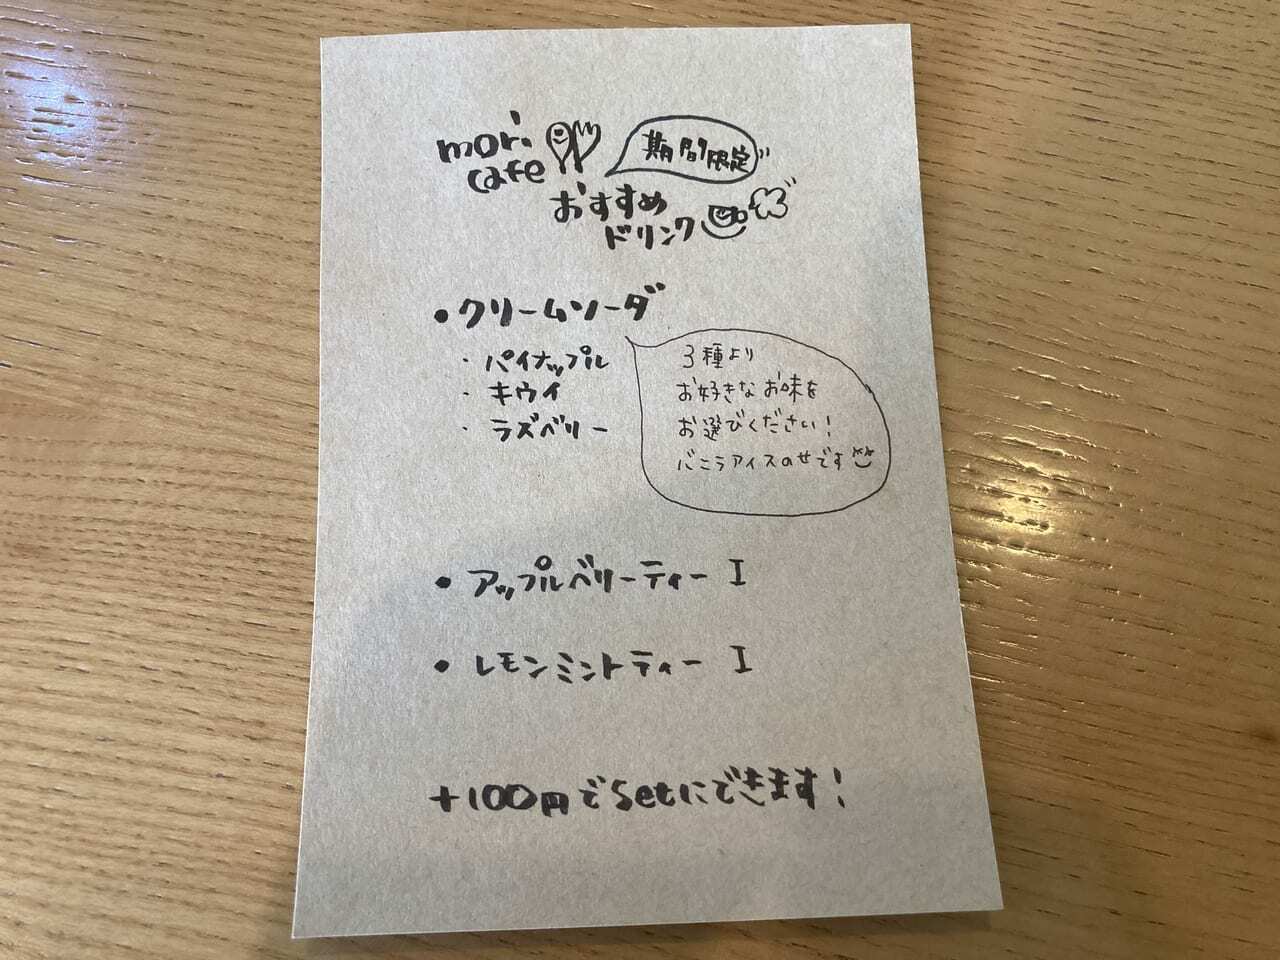 mori
cafe
期間限定
おすすめ
ドリンク
• クリームソーダ
・ パイナップル
・ キウイ
・ ラズベリー
3種より
お好きなお味を
お選びください!
バニラアイスのせです
• アップルベリーティー I
• レモンミントティー I
+100円でSetにできます!